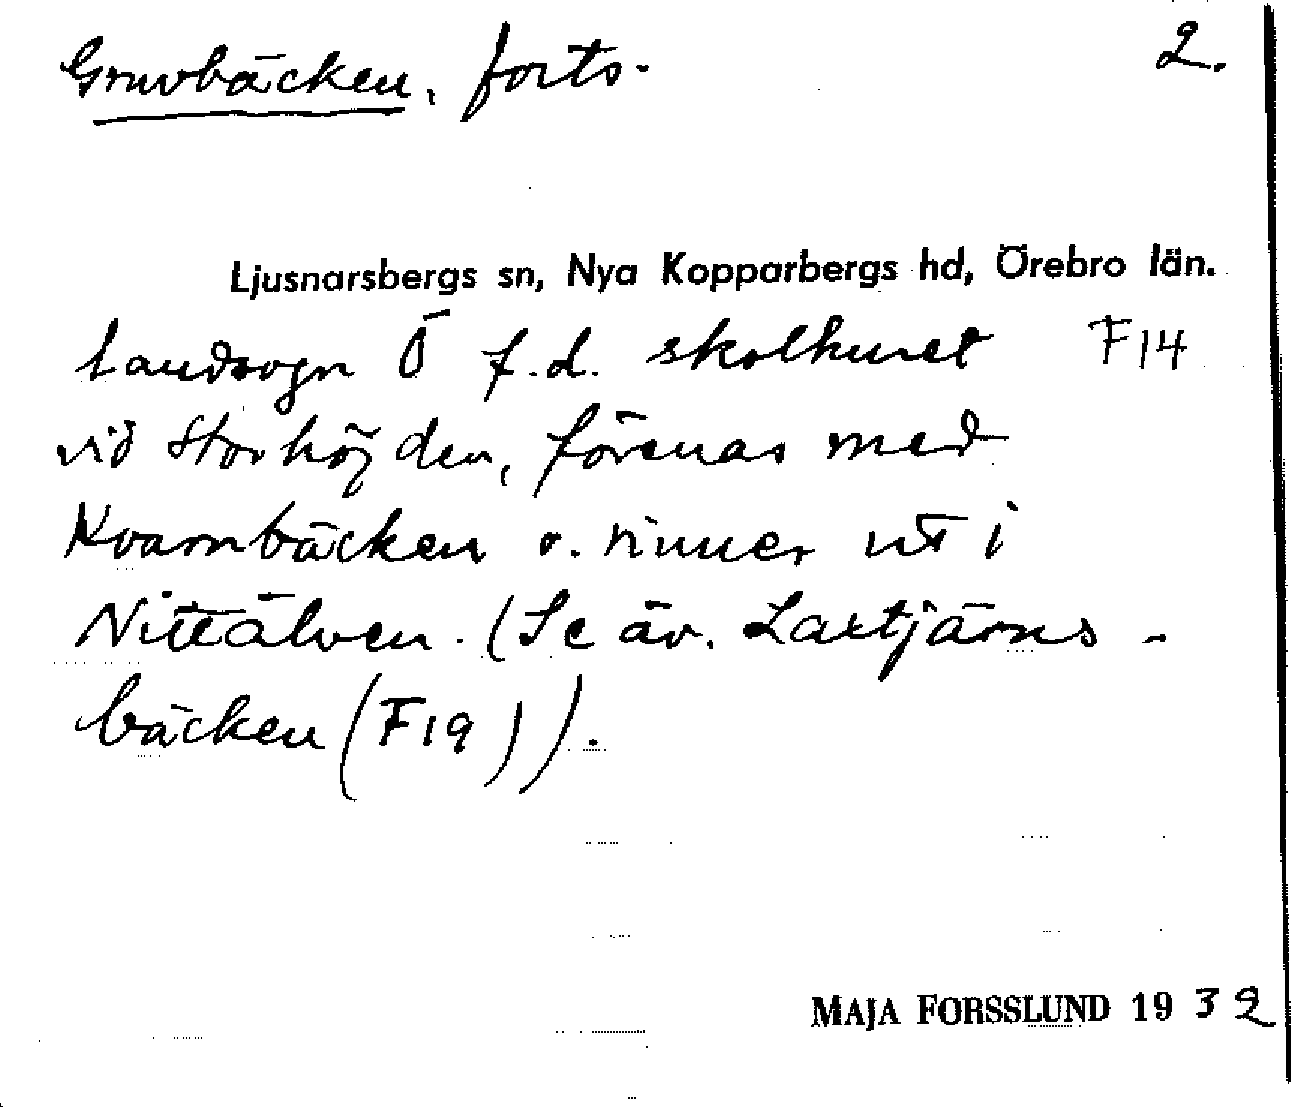 Gruvbäcken, forts.
2.
Ljusnarsbergs sn, Nya Kopparbergs hd, Örebro län.
landsvägn Ö f.d. skolhuset F14
vid Storhöjden, förenas med
Kvarnbäcken o. rinner ut i
Nittälven. (Se äv. Laxtjärns-
bäcken (F19)).
MAJA FORSSLUND 1932